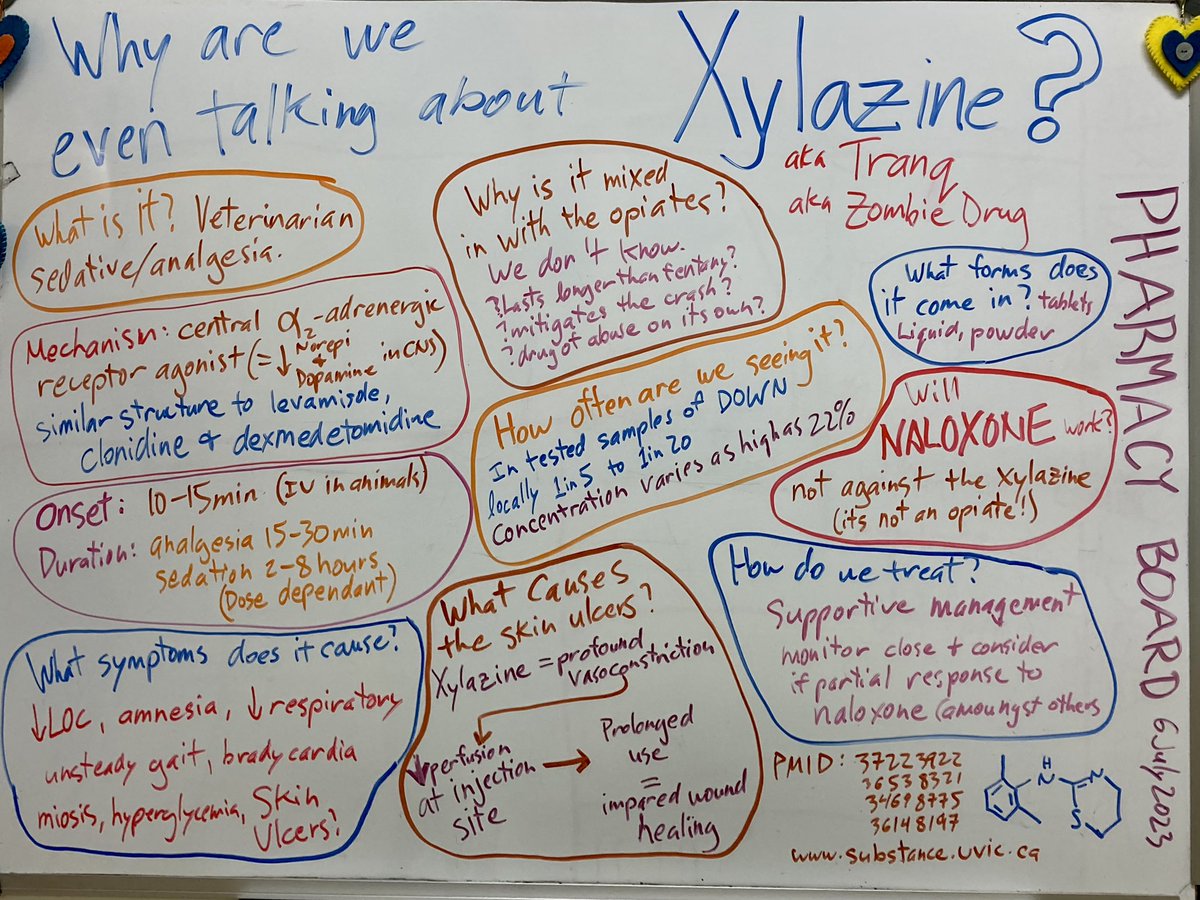 Why are we
even talking about
Xylazine?
aka Tranq
aka Zombie Drug
What is it? Veterinarian
sedative/analgesia.
Mechanism: central α2-adrenergic
receptor agonist (= ↓ Norepi & Dopamine in CNS)
similar structure to levamisole,
clonidine & dexmedetomidine
Onset: 10-15min (IV in animals)
Duration: analgesia 15-30min
sedation 2-8 hours
(Dose dependant)
What symptoms does it cause?
↓LOC, amnesia, ↓respiratory
unsteady gait, bradycardia
miosis, hyperglycemia, Skin
Ulcers?
Why is it mixed
in with the opiates?
We don't know.
? Lasts longer than fentany?
? mitigates the crash?
? drug of abuse on its own?
How often are we seeing it?
In tested samples of DOWN
locally 1 in 5 to 1 in 20
Concentration varies as high as 22%
What Causes
the skin ulcers?
Xylazine = profound
vasoconstriction
↓perfusion
at injection
site
Prolonged
use
=
impared wound
healing
What forms does
it come in? tablets
Liquid, powder
Will
NALOXONE work?
not against the Xylazine
(its not an opiate!)
How do we treat?
Supportive management
monitor close + consider
if partial response to
naloxone (amoungst others
PMID: 37223922
36538321
34698775
36148197
www.substance.uvic.ca
H
N
N
S
PHARMACY BOARD 6 July 2023